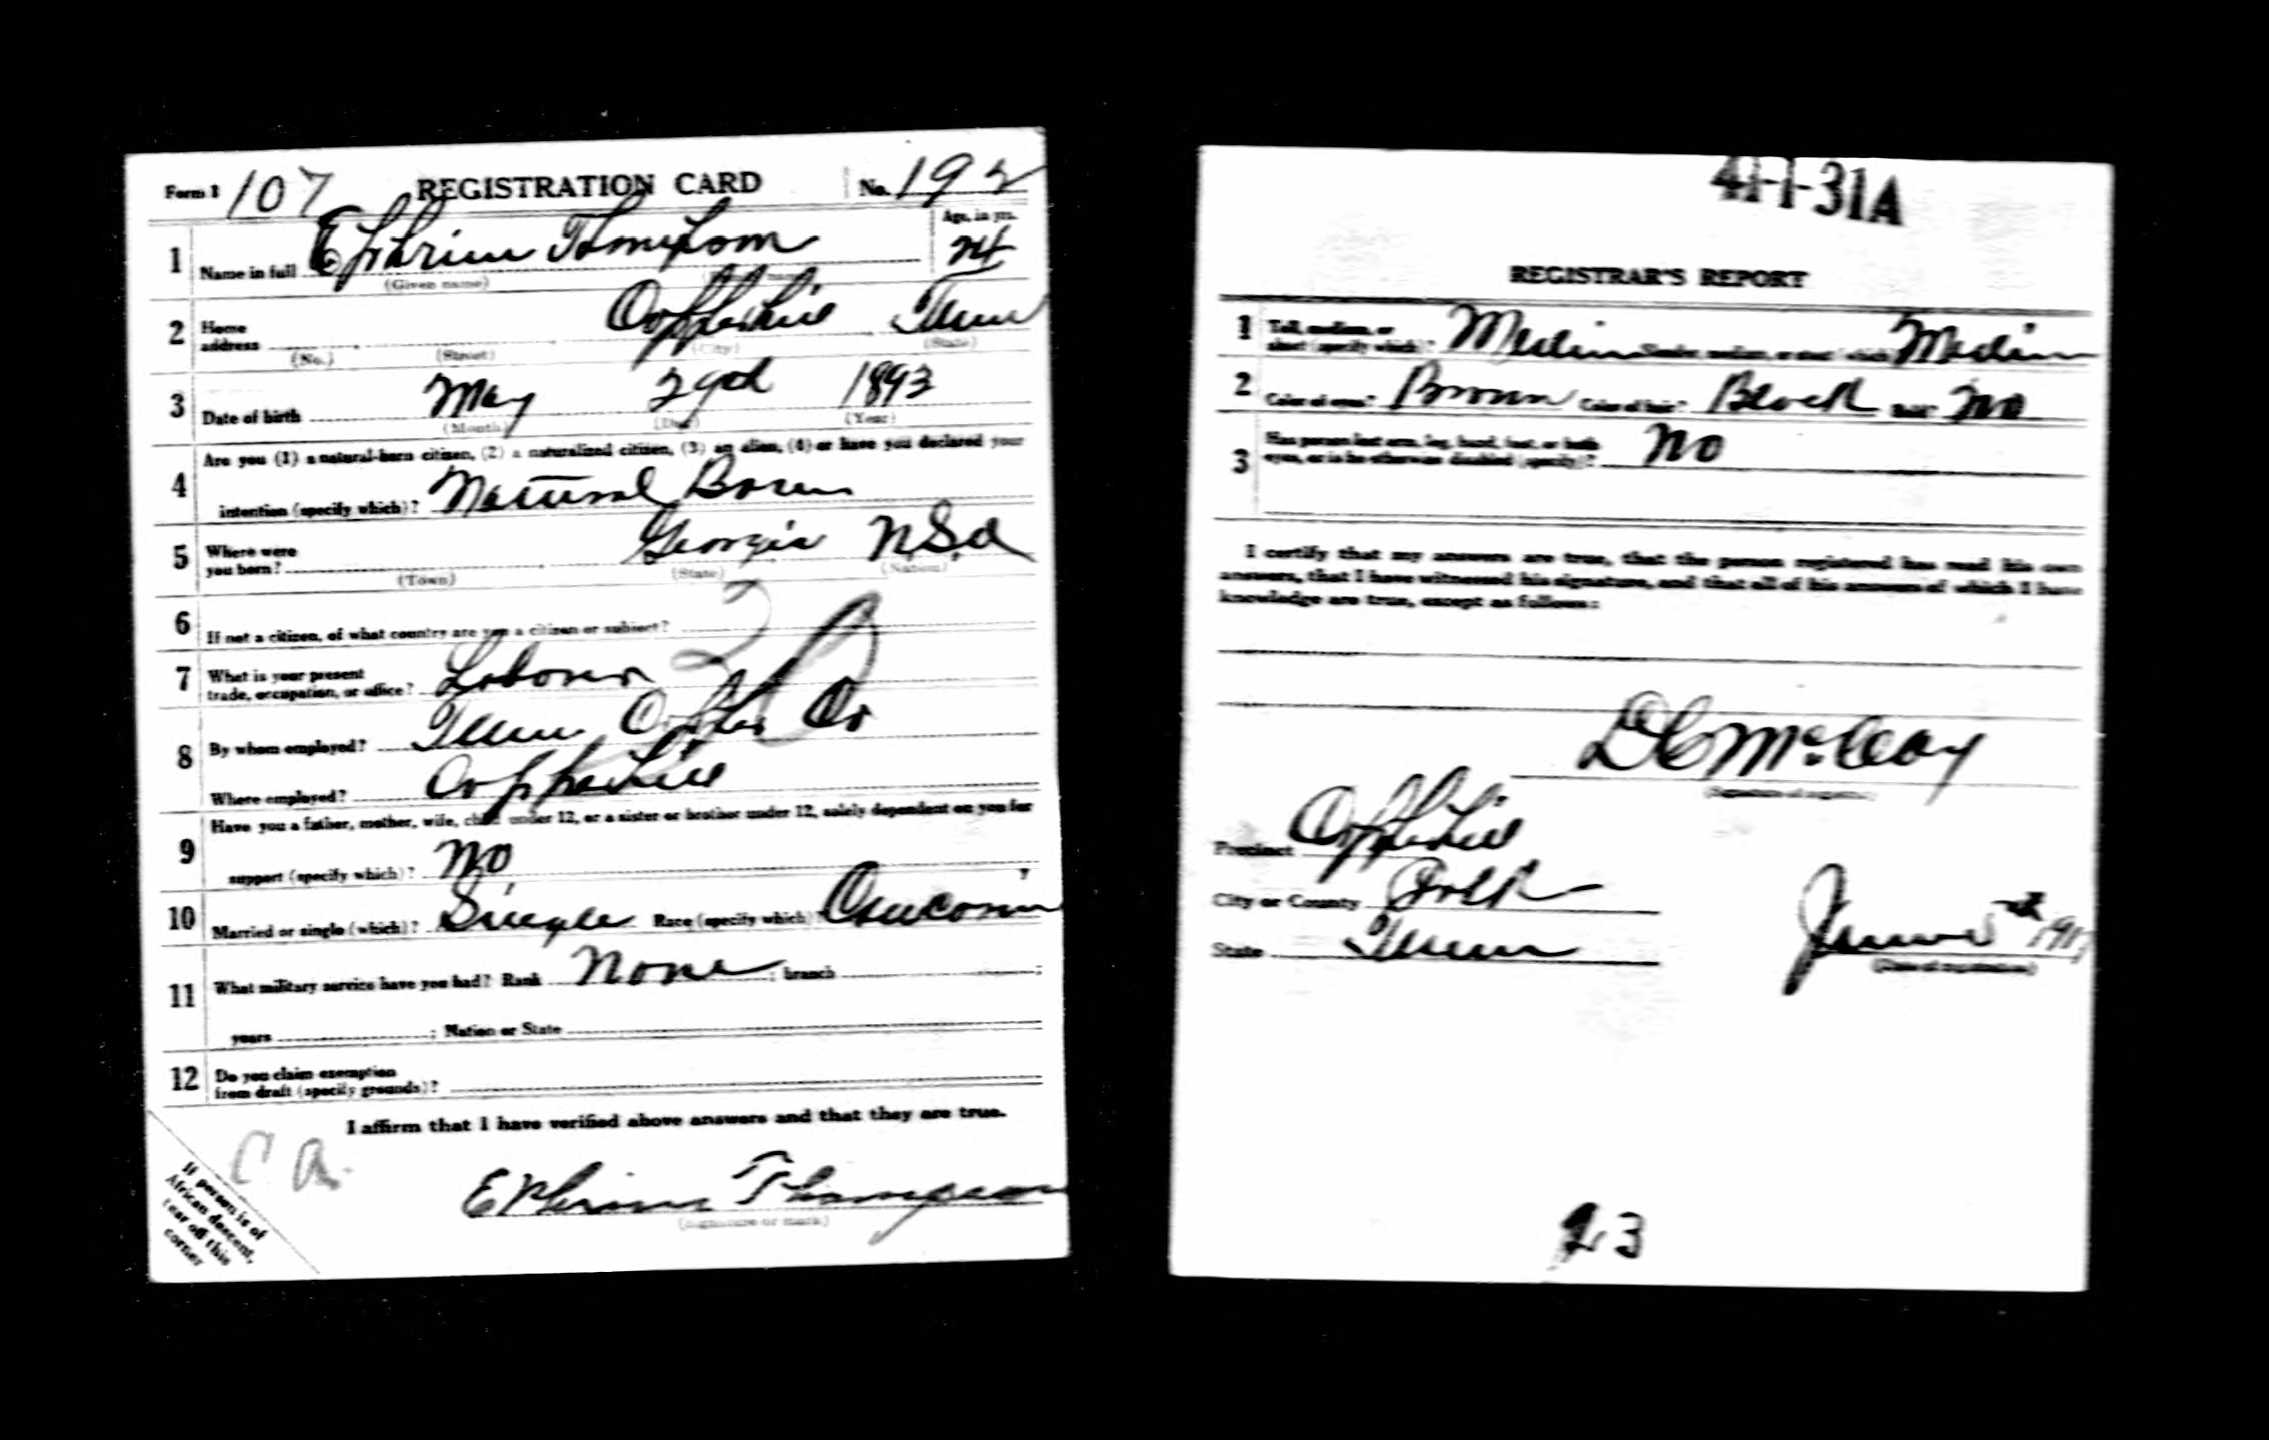 Form 1 107 REGISTRATION CARD No. 192
Age, in yrs.
1 Name in full Ephrim Thompson 24
(Given name)
Copperhill Tenn
2 Home address
(No.) (Street) (City) (State)
3 Date of birth May 29 1893
(Month) (Day) (Year)
4 Are you (1) a natural-born citizen, (2) a naturalized citizen, (3) an alien, (4) or have you declared your
intention (specify which)? Natural Born
5 Where were you born? Georgia U.S.A
(Town) (State) (Nation)
6 If not a citizen, of what country are you a citizen or subject?
7 What is your present
trade, occupation, or office? Laborer
8 By whom employed? Tenn Copper Co
Where employed? Copperhill
9 Have you a father, mother, wife, child under 12, or a sister or brother under 12, solely dependent on you for
support (specify which)? No
10 Married or single (which)? Single Race (specify which)?
11 What military service have you had? Rank None ; branch ;
years ; Nation or State
12 Do you claim exemption
from draft (specify grounds)?
I affirm that I have verified above answers and that they are true.
C a.
Ephrim Thompson
(Signature or mark)
If person is of
African descent,
tear off this
corner
41-1-31A
REGISTRAR'S REPORT
1 Tall, medium, or
short (specify which)? Medium Slender, medium, or stout (which)? Medium
2 Color of eyes? Brown Color of hair? Black Bald? No
3 Has person lost arm, leg, hand, foot, or both
eyes, or is he otherwise disabled (specify)? No
I certify that my answers are true, that the person registered has read his own
answers, that I have witnessed his signature, and that all of his answers of which I have
knowledge are true, except as follows:
D C McCoy
(Signature of registrar)
Precinct Copperhill
City or County Polk
State Tenn
June 5th 1917
(Date of registration)
23